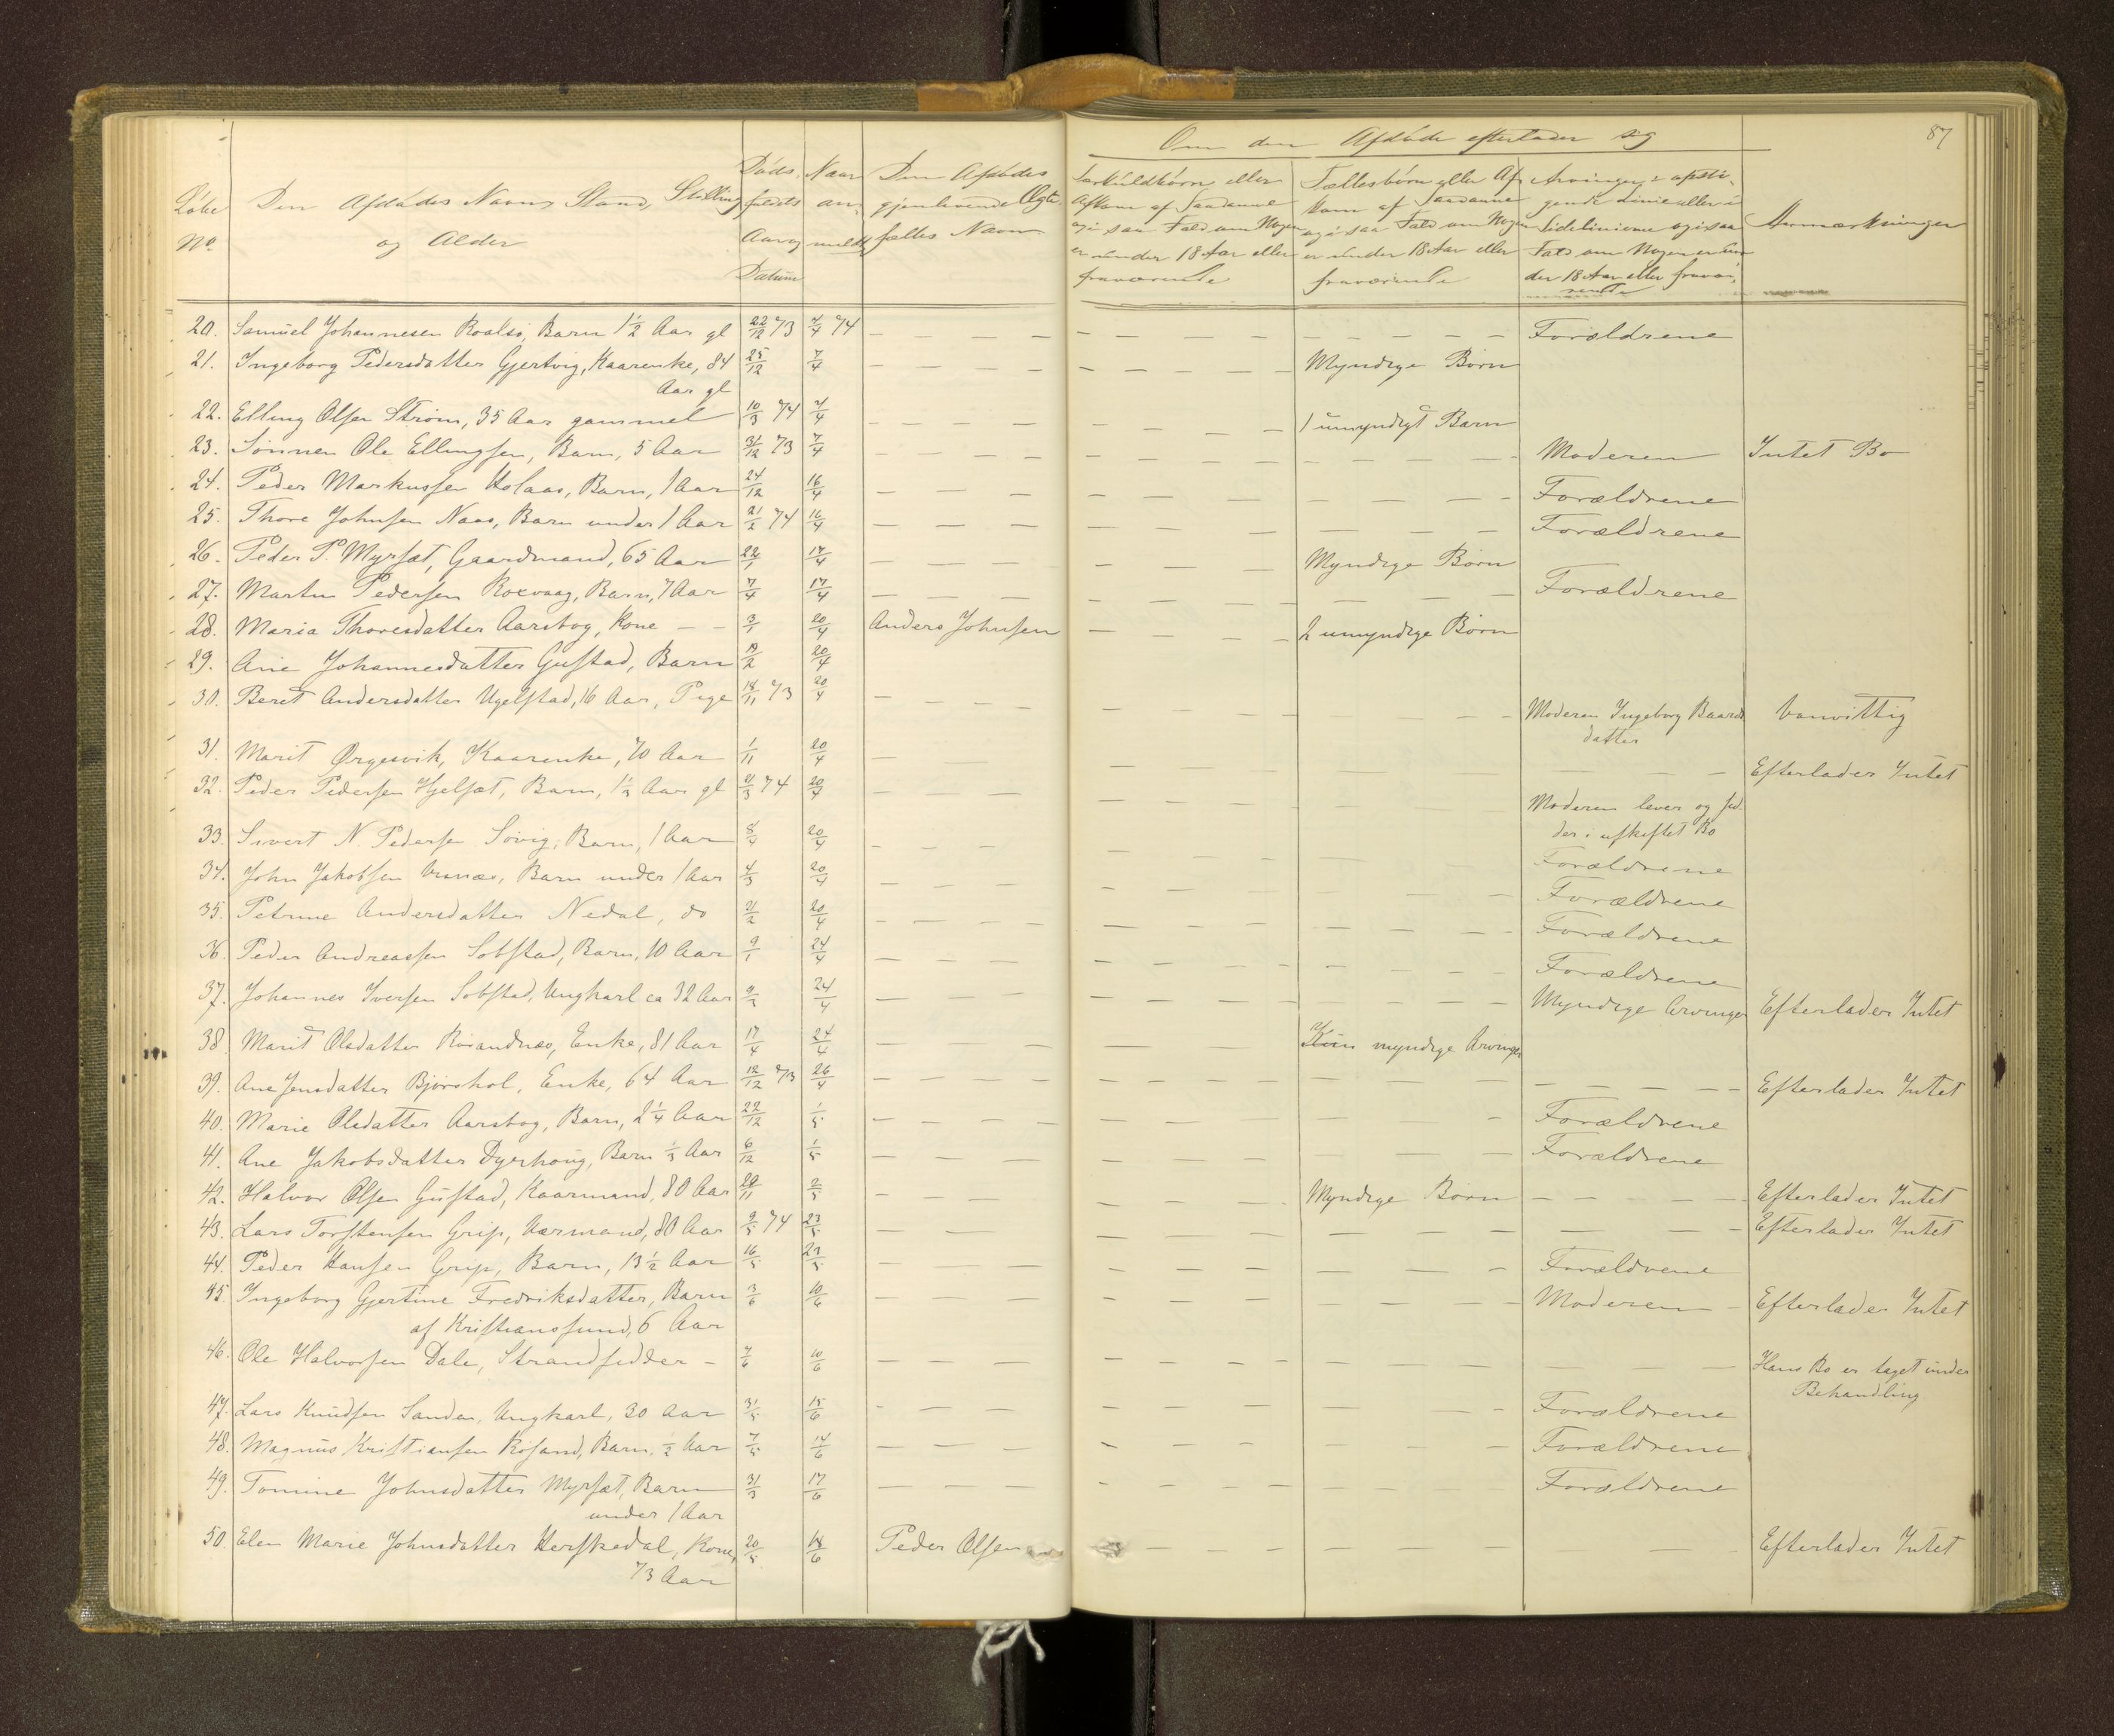 87
Om den Afdøde efterlader sig
Løbe No
Den Afdødes Navn, Stand, Stilling og Alder
Dødsfaldets Aar og Datum
Naar anmeldt
Den Afdødes gjenlevende Ægtefælles Navn
Særkuldbørn eller Afkom af Saadanne og i saa Fald om Nogen er under 18 Aar eller fraværende
Fællesbørn eller Afkom af Saadanne og i saa Fald om Nogen er under 18 Aar eller fraværende
Arvinger i opstigende Linie eller i Sidelinierne og i saa Fald om Nogen er under 18 Aar eller fraværende
Anmærkninger
20. Samuel Johannesen Roalsø, Barn 1 1/2 Aar gl 22/12 73 7/4 74 — Forældrene
21. Ingeborg Pedersdatter Gjertvig, Kaarenke, 84 Aar gl 25/12 7/4 — Myndige Børn
22. Elling Olsen Strøm, 35 Aar gammel 10/3 74 7/4 — 1 umyndigt Barn
23. Sønnen Ole Ellingsen, Barn, 5 Aar 31/12 73 7/4 — Moderen Intet Bo
24. Peder Markussen Holaas, Barn, 1 Aar 24/12 16/4 — Forældrene
25. Thore Johnsen Naas, Barn under 1 Aar 21/2 74 16/4 — Forældrene
26. Peder P. Myrsæt, Gaardmand, 65 Aar 22/1 17/4 — Myndige Børn
27. Martin Pedersen Roxvaag, Barn, 7 Aar 7/4 17/4 — Forældrene
28. Maria Thoresdatter Aarsbog, Kone — 3/1 20/4 Anders Johnsen — 2 umyndige Børn
29. Ane Johannesdatter Gustad, Barn 19/2 20/4
30. Beret Andersdatter Ugelstad, 16 Aar, Pige 18/11 73 20/4 — Moderen Ingeborg Baardsdatter Vanvittig
31. Marit Ørgesvik, Kaarenke, 70 Aar 1/11 20/4 — Efterlader Intet
32. Peder Pedersen Hjelsæt, Barn, 1 1/3 Aar gl 21/3 74 20/4 — Moderen lever og sidder i uskiftet Bo
33. Sivert N. Pedersen Søvig, Barn, 1 Aar 20/4 — Forældrene
34. John Jakobsen Visnæs, Barn under 1 Aar 4/3 20/4 — Forældrene
35. Petrine Andersdatter Nedal, do 21/2 20/4 — Forældrene
36. Peder Andreassen Solstad, Barn, 10 Aar 9/1 24/4 — Forældrene
37. Johannes Iversen Solstad, Ungkarl ca 32 Aar 9/2 24/4 — Myndige Arvinger Efterlader Intet
38. Marit Olsdatter Røsandnæs, Enke, 81 Aar 17/4 24/4 — Kun myndige Arvinger
39. Ane Jensdatter Bjørshol, Enke, 64 Aar 12/12 73 26/4 — Efterlader Intet
40. Marie Olsdatter Aarsbog, Barn, 2 1/4 Aar 22/12 1/5 — Forældrene
41. Ane Jakobsdatter Dyrhoug, Barn 1/3 Aar 6/12 1/5 — Forældrene
42. Halvor Olsen Gustad, Kaarmand, 80 Aar 20/11 2/5 — Myndige Børn — Efterlader Intet
43. Lars Torstensen Grip, Værmand, 80 Aar 9/5 74 23/5 — Efterlader Intet
44. Peder Hansen Grip, Barn, 13 1/2 Aar 16/5 23/5 — Forældrene
45. Ingeborg Gjertine Fredriksdatter, Barn af Kristiansund, 6 Aar 3/6 10/6 — Moderen — Efterlader Intet
46. Ole Halvorsen Dale, Strandsidder — 7/6 10/6 — Hans Bo er taget under Behandling
47. Lars Knudsen Sanden, Ungkarl, 30 Aar 31/5 15/6 — Forældrene
48. Magnus Kristiansen Røsand, Barn, 1/2 Aar 7/5 14/6 — Forældrene
49. Tomine Johnsdatter Myrsæt, Barn under 1 Aar 31/3 17/6 — Forældrene
50. Elen Marie Johnsdatter Herskedal, Kone, 73 Aar 20/5 18/6 Peder Olsen — Efterlader Intet